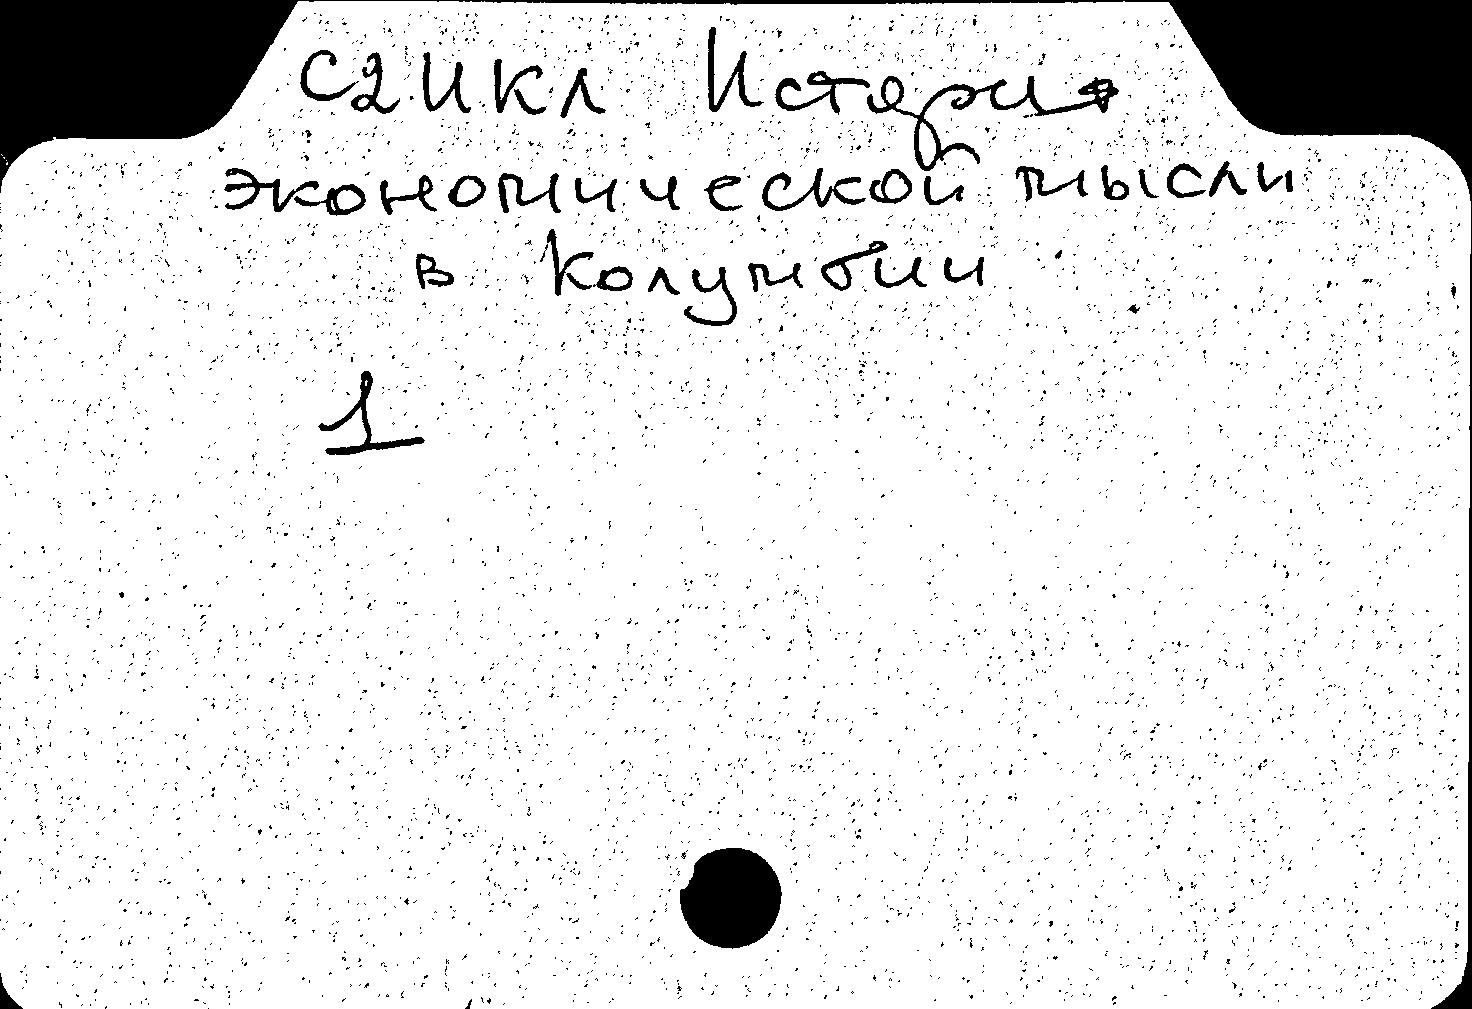 С2ИКЛ История
экономической мысли
в Колумбии
1